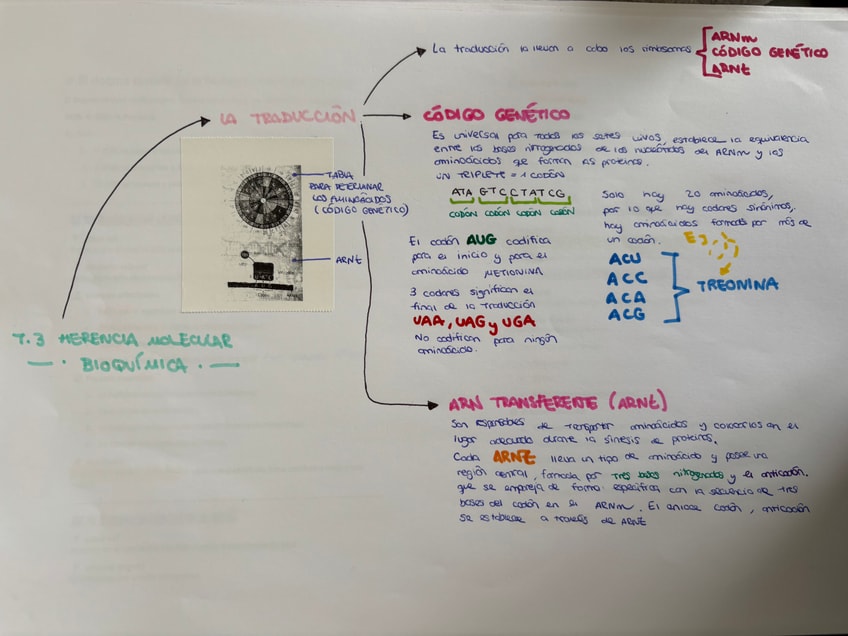 T.3 HERENCIA MOLECULAR
BIOQUÍMICA
LA TRADUCCIÓN
TABLA
PARA DETERMINAR
LOS AMINOÁCIDOS
(CÓDIGO GENÉTICO)
ARNt
La traducción la llevan a cabo los ribosomas
ARNm
CÓDIGO GENÉTICO
ARNt
CÓDIGO GENÉTICO
Es universal para todos los seres vivos, establece la equivalencia
entre las bases nitrogenadas de los nucleótidos del ARNm y los
aminoácidos que forman las proteínas.
UN TRIPLETE = 1 CODÓN
ATA GTCCTATCG
CODÓN CODÓN CODÓN CODÓN
El codón AUG codifica
para el inicio y para el
aminoácido METIONINA
3 codones significan el
final de la traducción
UAA, UAG y UGA
No codifican para ningún
aminoácido.
Solo hay 20 aminoácidos,
por lo que hay codones sinónimos,
hay aminoácidos formados por más de
un codón. Ej
ACU
ACC
ACA
ACG
TREONINA
ARN TRANSFERENTE (ARNt)
Son responsables de transportar aminoácidos y colocarlos en el
lugar adecuado durante la síntesis de proteínas.
Cada ARNt lleva un tipo de aminoácido y posee una
región central, formada por tres bases nitrogenadas y el anticodón.
que se empareja de forma específica con la secuencia de tres
bases del codón en el ARNm. El enlace codón, anticodón
se establece a través de ARNt